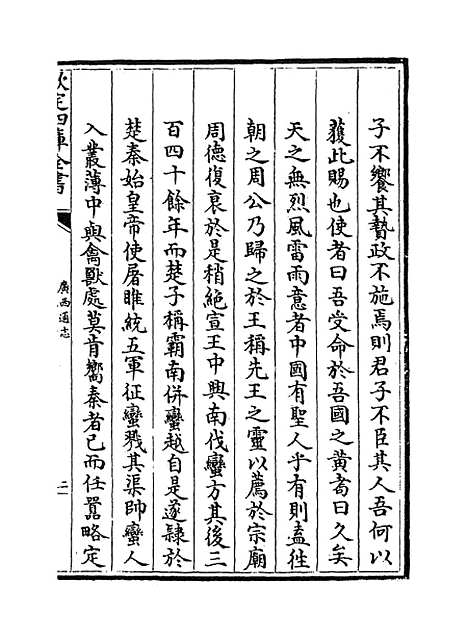 子不饗其贄政不施焉則君子不臣其人吾何以
獲此賜也使者曰吾受命於吾國之黄耉曰久矣
天之無烈風雷雨意者中國有聖人乎有則盍徃
朝之周公乃歸之於王稱先王之靈以薦於宗廟
周徳復衰於是稍絶宣王中興南伐蠻方其後三
百四十餘年而楚子稱霸南併蠻越自是遂隸於
楚秦始皇帝使屠睢統五軍征蠻戮其渠帥蠻人
入叢薄中與禽獸處莫肯嚮秦者已而任囂略定
欽定四庫全書
廣西通志
二